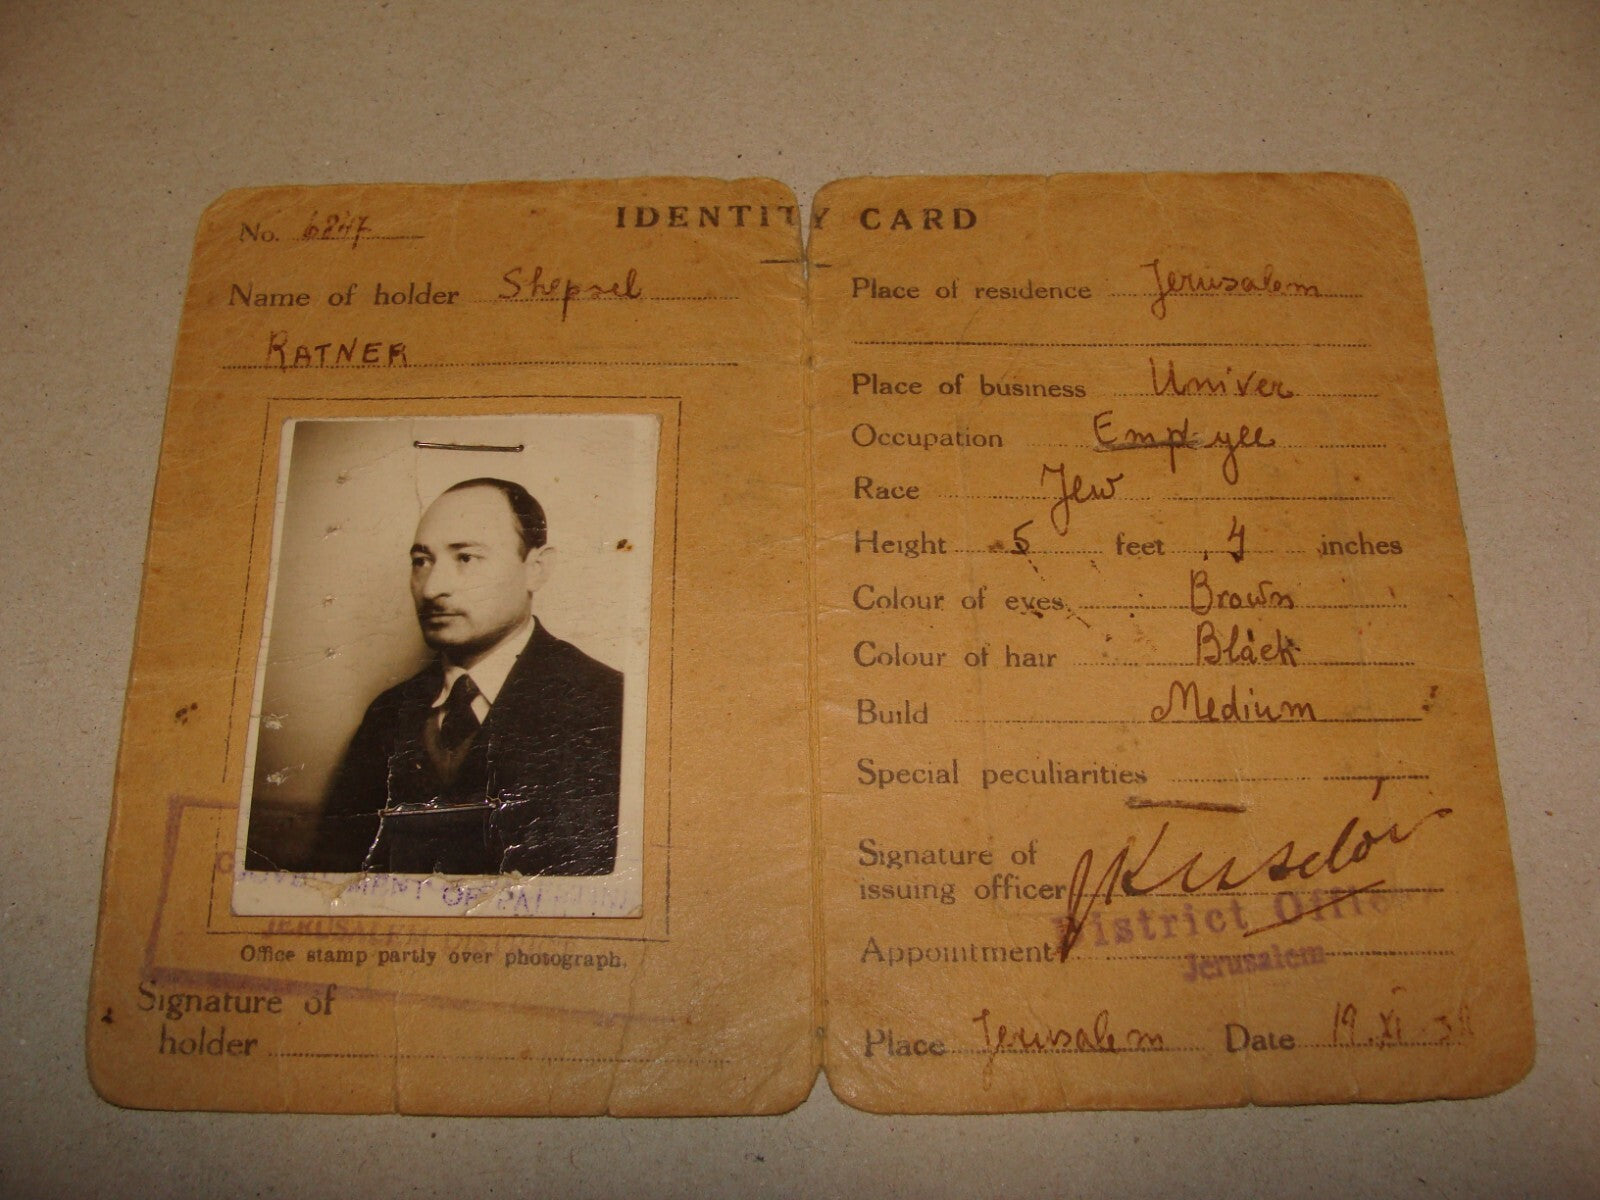 IDENTITY CARD
No. 6247
Name of holder Shepsel
RATNER
GOVERNMENT OF PALESTINE
JERUSALEM DISTRICT
Office stamp partly over photograph.
Signature of
holder
Place of residence Jerusalem
Place of business Univer
Occupation Employee
Race Jew
Height 5 feet 4 inches
Colour of eyes Brown
Colour of hair Black
Build Medium
Special peculiarities
Signature of
issuing officer
District Office
Appointment
Jerusalem
Place Jerusalem Date 19.XI.38